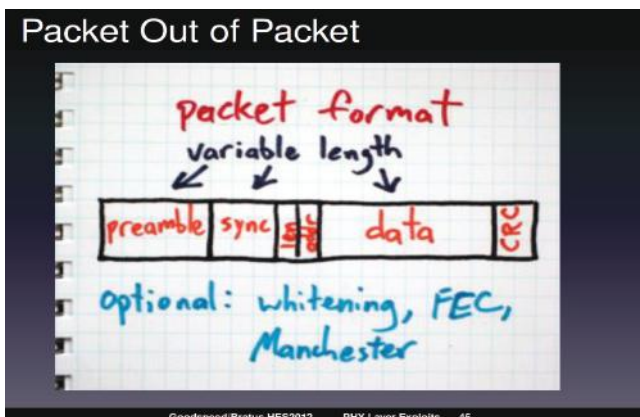 Packet Out of Packet
packet format
variable length
preamble sync len addr data CRC
optional: whitening, FEC,
Manchester
Goodspeed/Bratus HES2012 PHY Layer Exploits 45